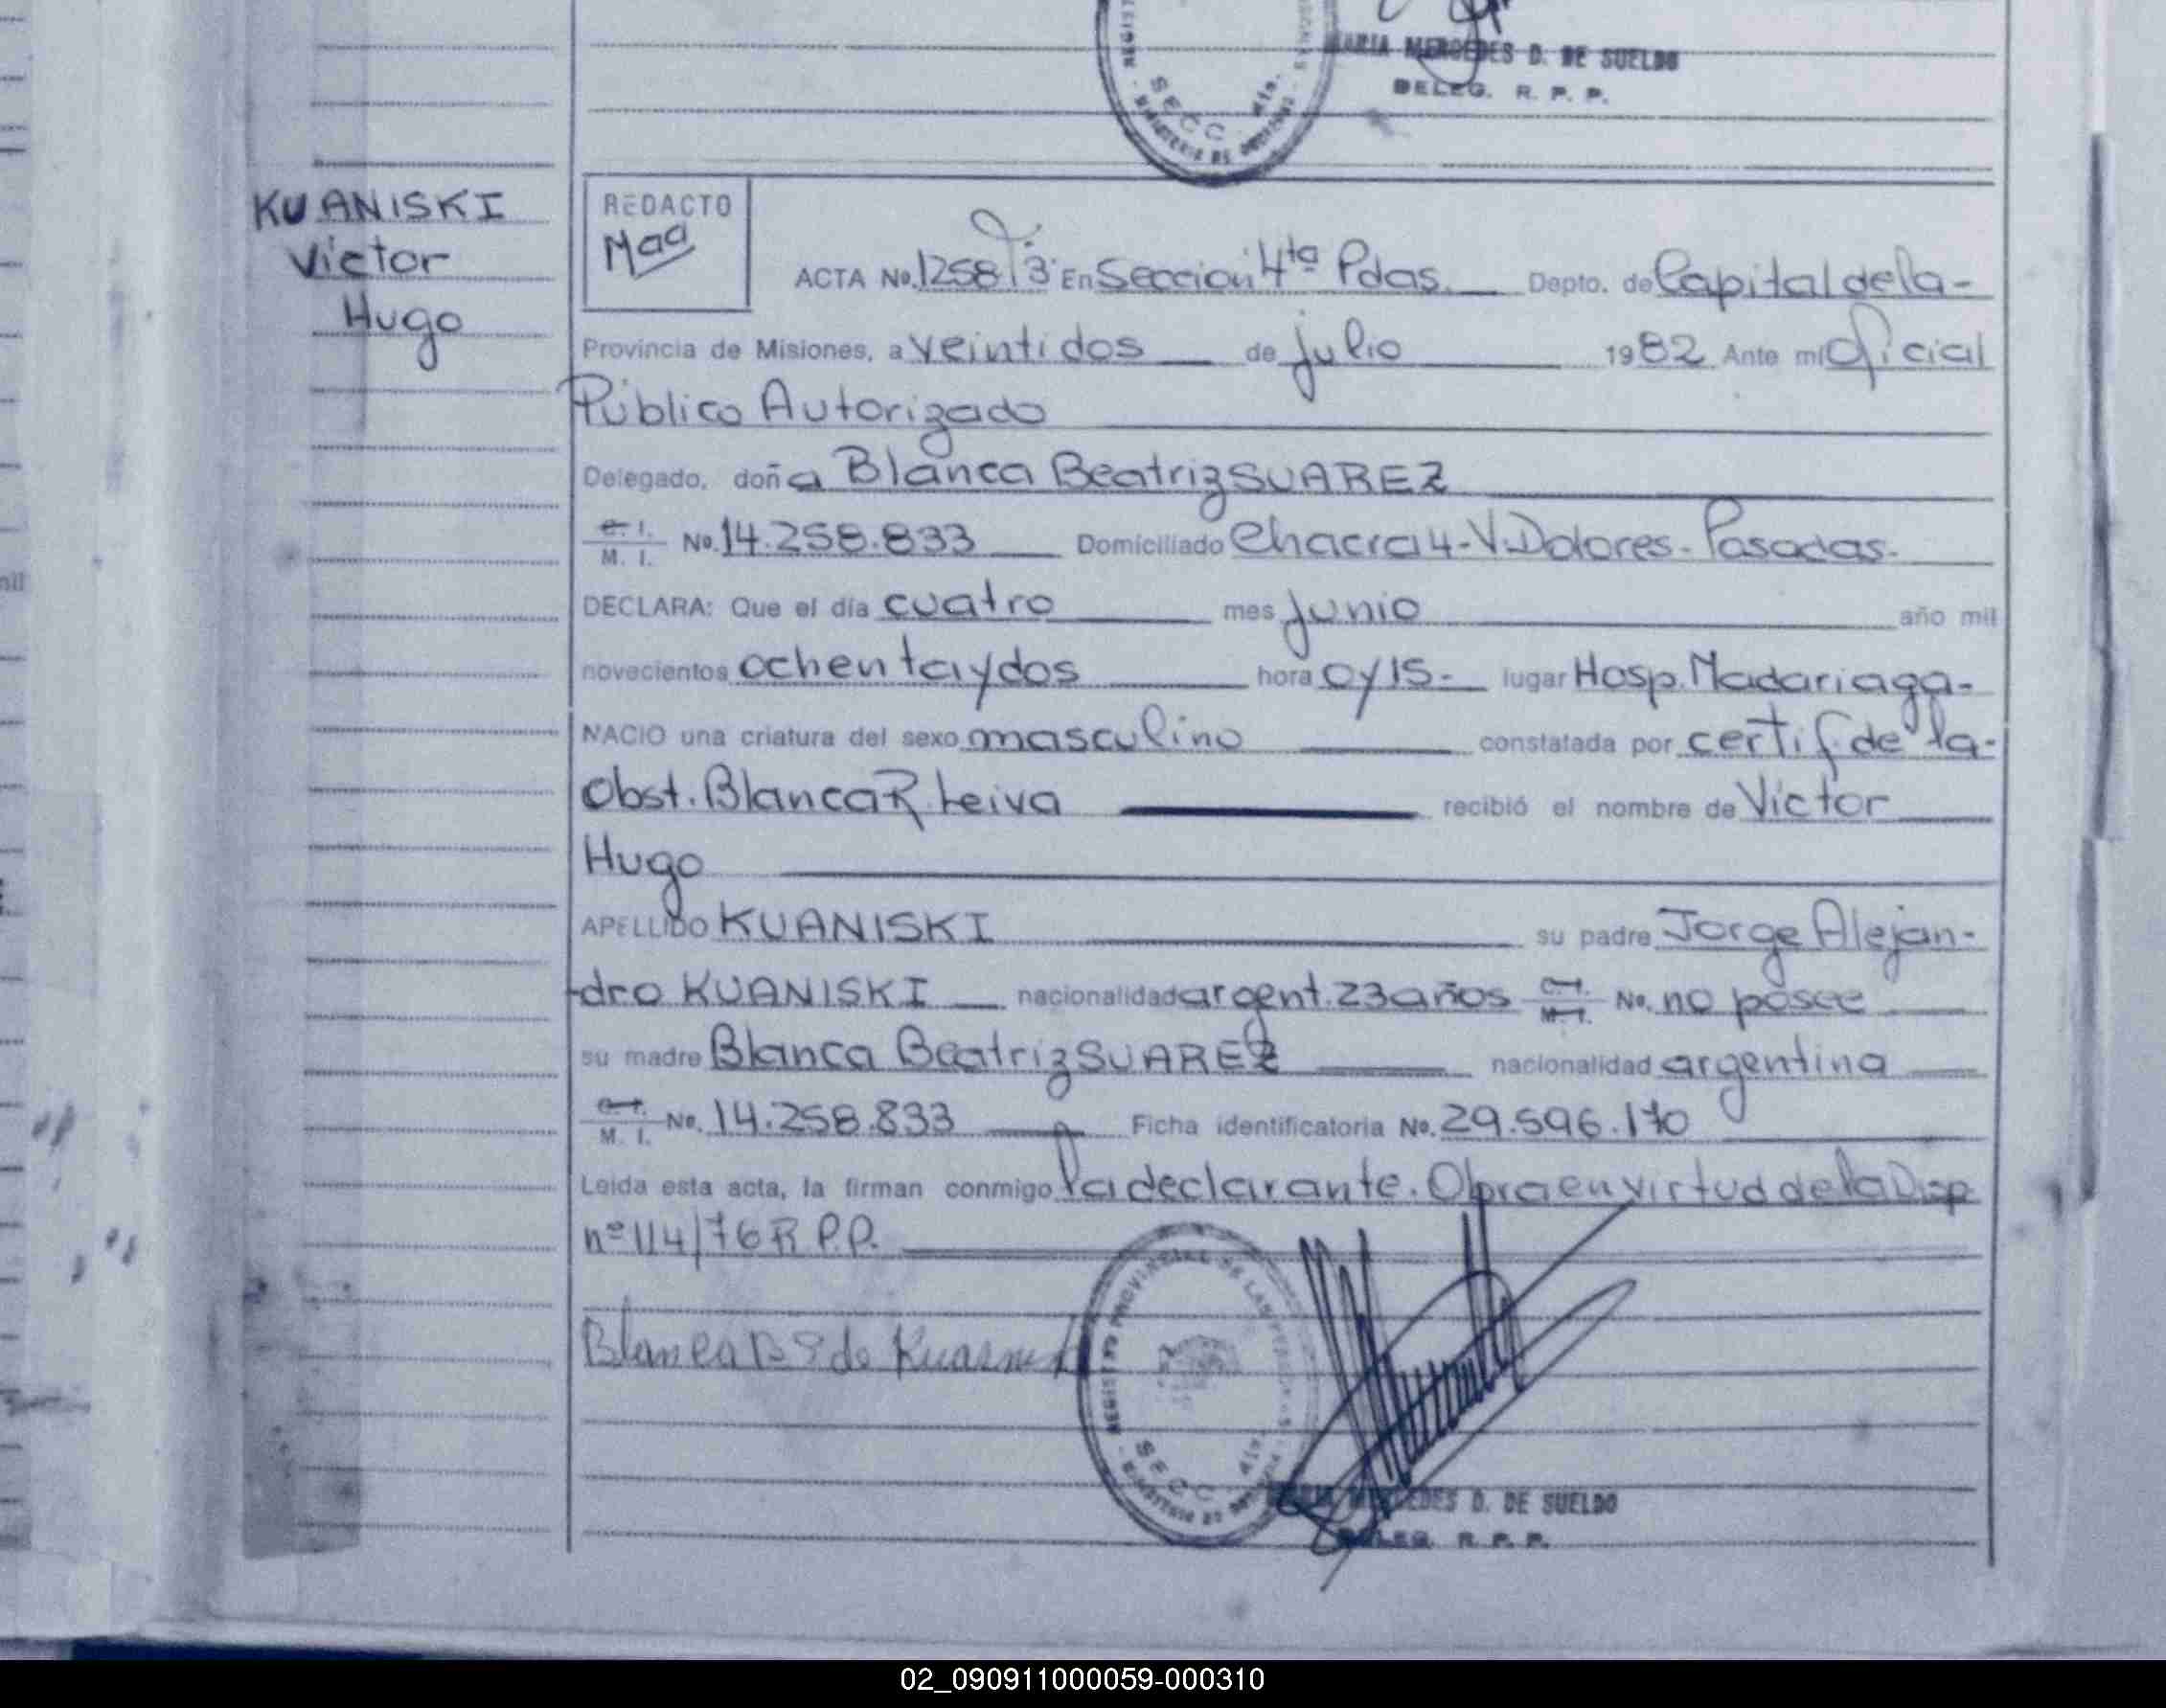 MARIA MERCEDES D. DE SUELDO
DELEG. R. P. P.
SECC. 4ta.
KUANISKI
Victor
Hugo
REDACTO
ACTA No. 1258 T 3 En Sección 4ta Pdas. Depto. de Capital de la-
Provincia de Misiones, a veintidos de julio 1982 Ante mi Oficial
Público Autorizado
Delegado, doña Blanca Beatriz SUAREZ
C. I. M. I. No. 14.258.833 Domiciliado Chacra 4-V. Dolores-Posadas-
DECLARA: Que el día cuatro mes junio año mil
novecientos ochenta y dos hora 0 y 15- lugar Hosp. Madariaga-
NACIO una criatura del sexo masculino constatada por certif de la-
Obst. Blanca R. Leiva recibió el nombre de Victor
Hugo
APELLIDO KUANISKI su padre Jorge Alejan-
dro KUANISKI nacionalidad argent. 23 años C. I. M. I. No. no posee
su madre Blanca Beatriz SUAREZ nacionalidad argentina
C. I. M. I. No. 14.258.833 Ficha identificatoria No. 29.596.170
Leida esta acta, la firman conmigo la declarante. Obra en virtud de la Disp
nº 114/76 R P.P.
Blanca B S de
REGISTRO PROVINCIAL DE LAS PERSONAS
SECC. 4ta.
MERCEDES D. DE SUELDO
DELEG. R. P. P.
02_090911000059-000310